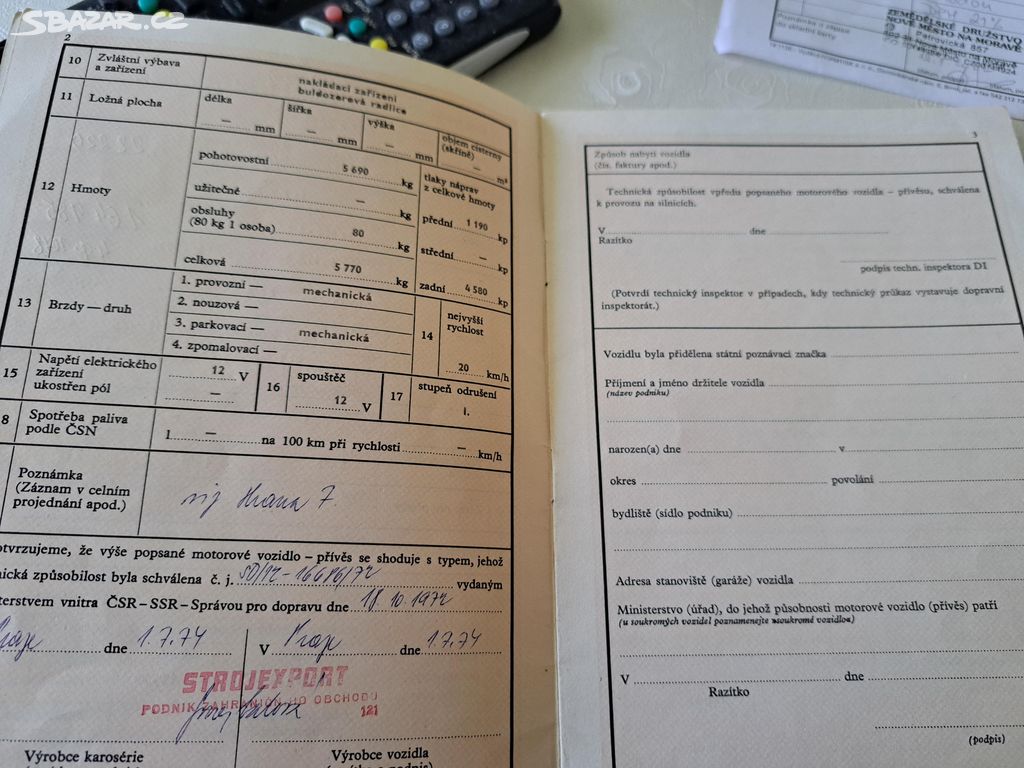 SBAZAR.CZ
2
10 Zvláštní výbava a zařízení
nakládací zařízení
buldozerová radlice
11 Ložná plocha
délka — mm
šířka — mm
výška — mm
objem cisterny (skříně) — m³
12 Hmoty
pohotovostní 5 690 kg
užitečné — kg
obsluhy (80 kg 1 osoba) 80 kg
celková 5 770 kg
tlaky náprav z celkové hmoty
přední 1 190 kp
střední — kp
zadní 4 580 kp
13 Brzdy — druh
1. provozní — mechanická
2. nouzová —
3. parkovací — mechanická
4. zpomalovací —
14 nejvyšší rychlost
20 km/h
15 Napětí elektrického zařízení ukostřen pól
12 V
—
16 spouštěč
12 V
17 stupeň odrušení
1.
8 Spotřeba paliva podle ČSN
l — na 100 km při rychlosti — km/h
Poznámka
(Záznam v celním projednání apod.)
viz strana 7.
otvrzujeme, že výše popsané motorové vozidlo – přívěs se shoduje s typem, jehož
nická způsobilost byla schválena č. j. SD/72-16676/72 vydaným
terstvem vnitra ČSR – SSR – Správou pro dopravu dne 18.10.1972
Praze dne 1.7.74 V Praze dne 1.7.74
STROJEXPORT
PODNIK ZAHRANIČNÍHO OBCHODU
121
Výrobce karosérie
Výrobce vozidla
3
Způsob nabytí vozidla
(čís. faktury apod.)
Technická způsobilost vpředu popsaného motorového vozidla – přívěsu, schválena
k provozu na silnicích.
V dne
Razítko
podpis techn. inspektora DI
(Potvrdí technický inspektor v případech, kdy technický průkaz vystavuje dopravní
inspektorát.)
Vozidlu byla přidělena státní poznávací značka
Příjmení a jméno držitele vozidla
(název podniku)
narozen(a) dne v
okres povolání
bydliště (sídlo podniku)
Adresa stanoviště (garáže) vozidla
Ministerstvo (úřad), do jehož působnosti motorové vozidlo (přívěs) patří
(u soukromých vozidel poznamenejte »soukromé vozidlo«)
V dne
Razítko
(podpis)
ZEMĚDĚLSKÉ DRUŽSTVO
NOVÉ MĚSTO NA MORAVĚ
Petrovická 857